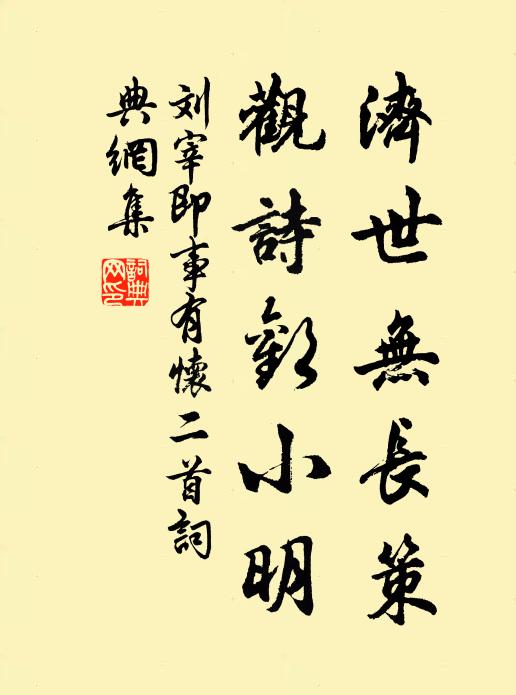 濟世無長策
觀詩歎小明
刘宰即事有懷二首詞
典網集
詞典
网印